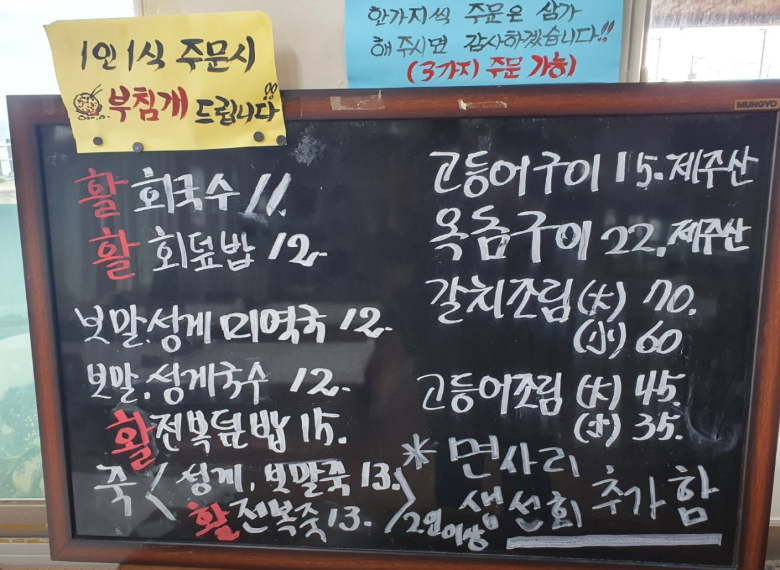 1인 1식 주문시
부침개 드립니다!!
한가지씩 주문은 삼가
해주시면 감사하겠습니다!!
(3가지 주문 가능)
MUNGYO
활 회국수 11.
활 회덮밥 12.
보말.성게 미역국 12.
보말.성게국수 12.
활전복덮밥 15.
죽 < 성게, 보말죽 13.
활전복죽 13. > 2인이상
고등어구이 15. 제주산
옥돔구이 22. 제주산
갈치조림(大) 70.
(小) 60
고등어조림 (大) 45.
(小) 35.
* 면사리
생선회 추가함